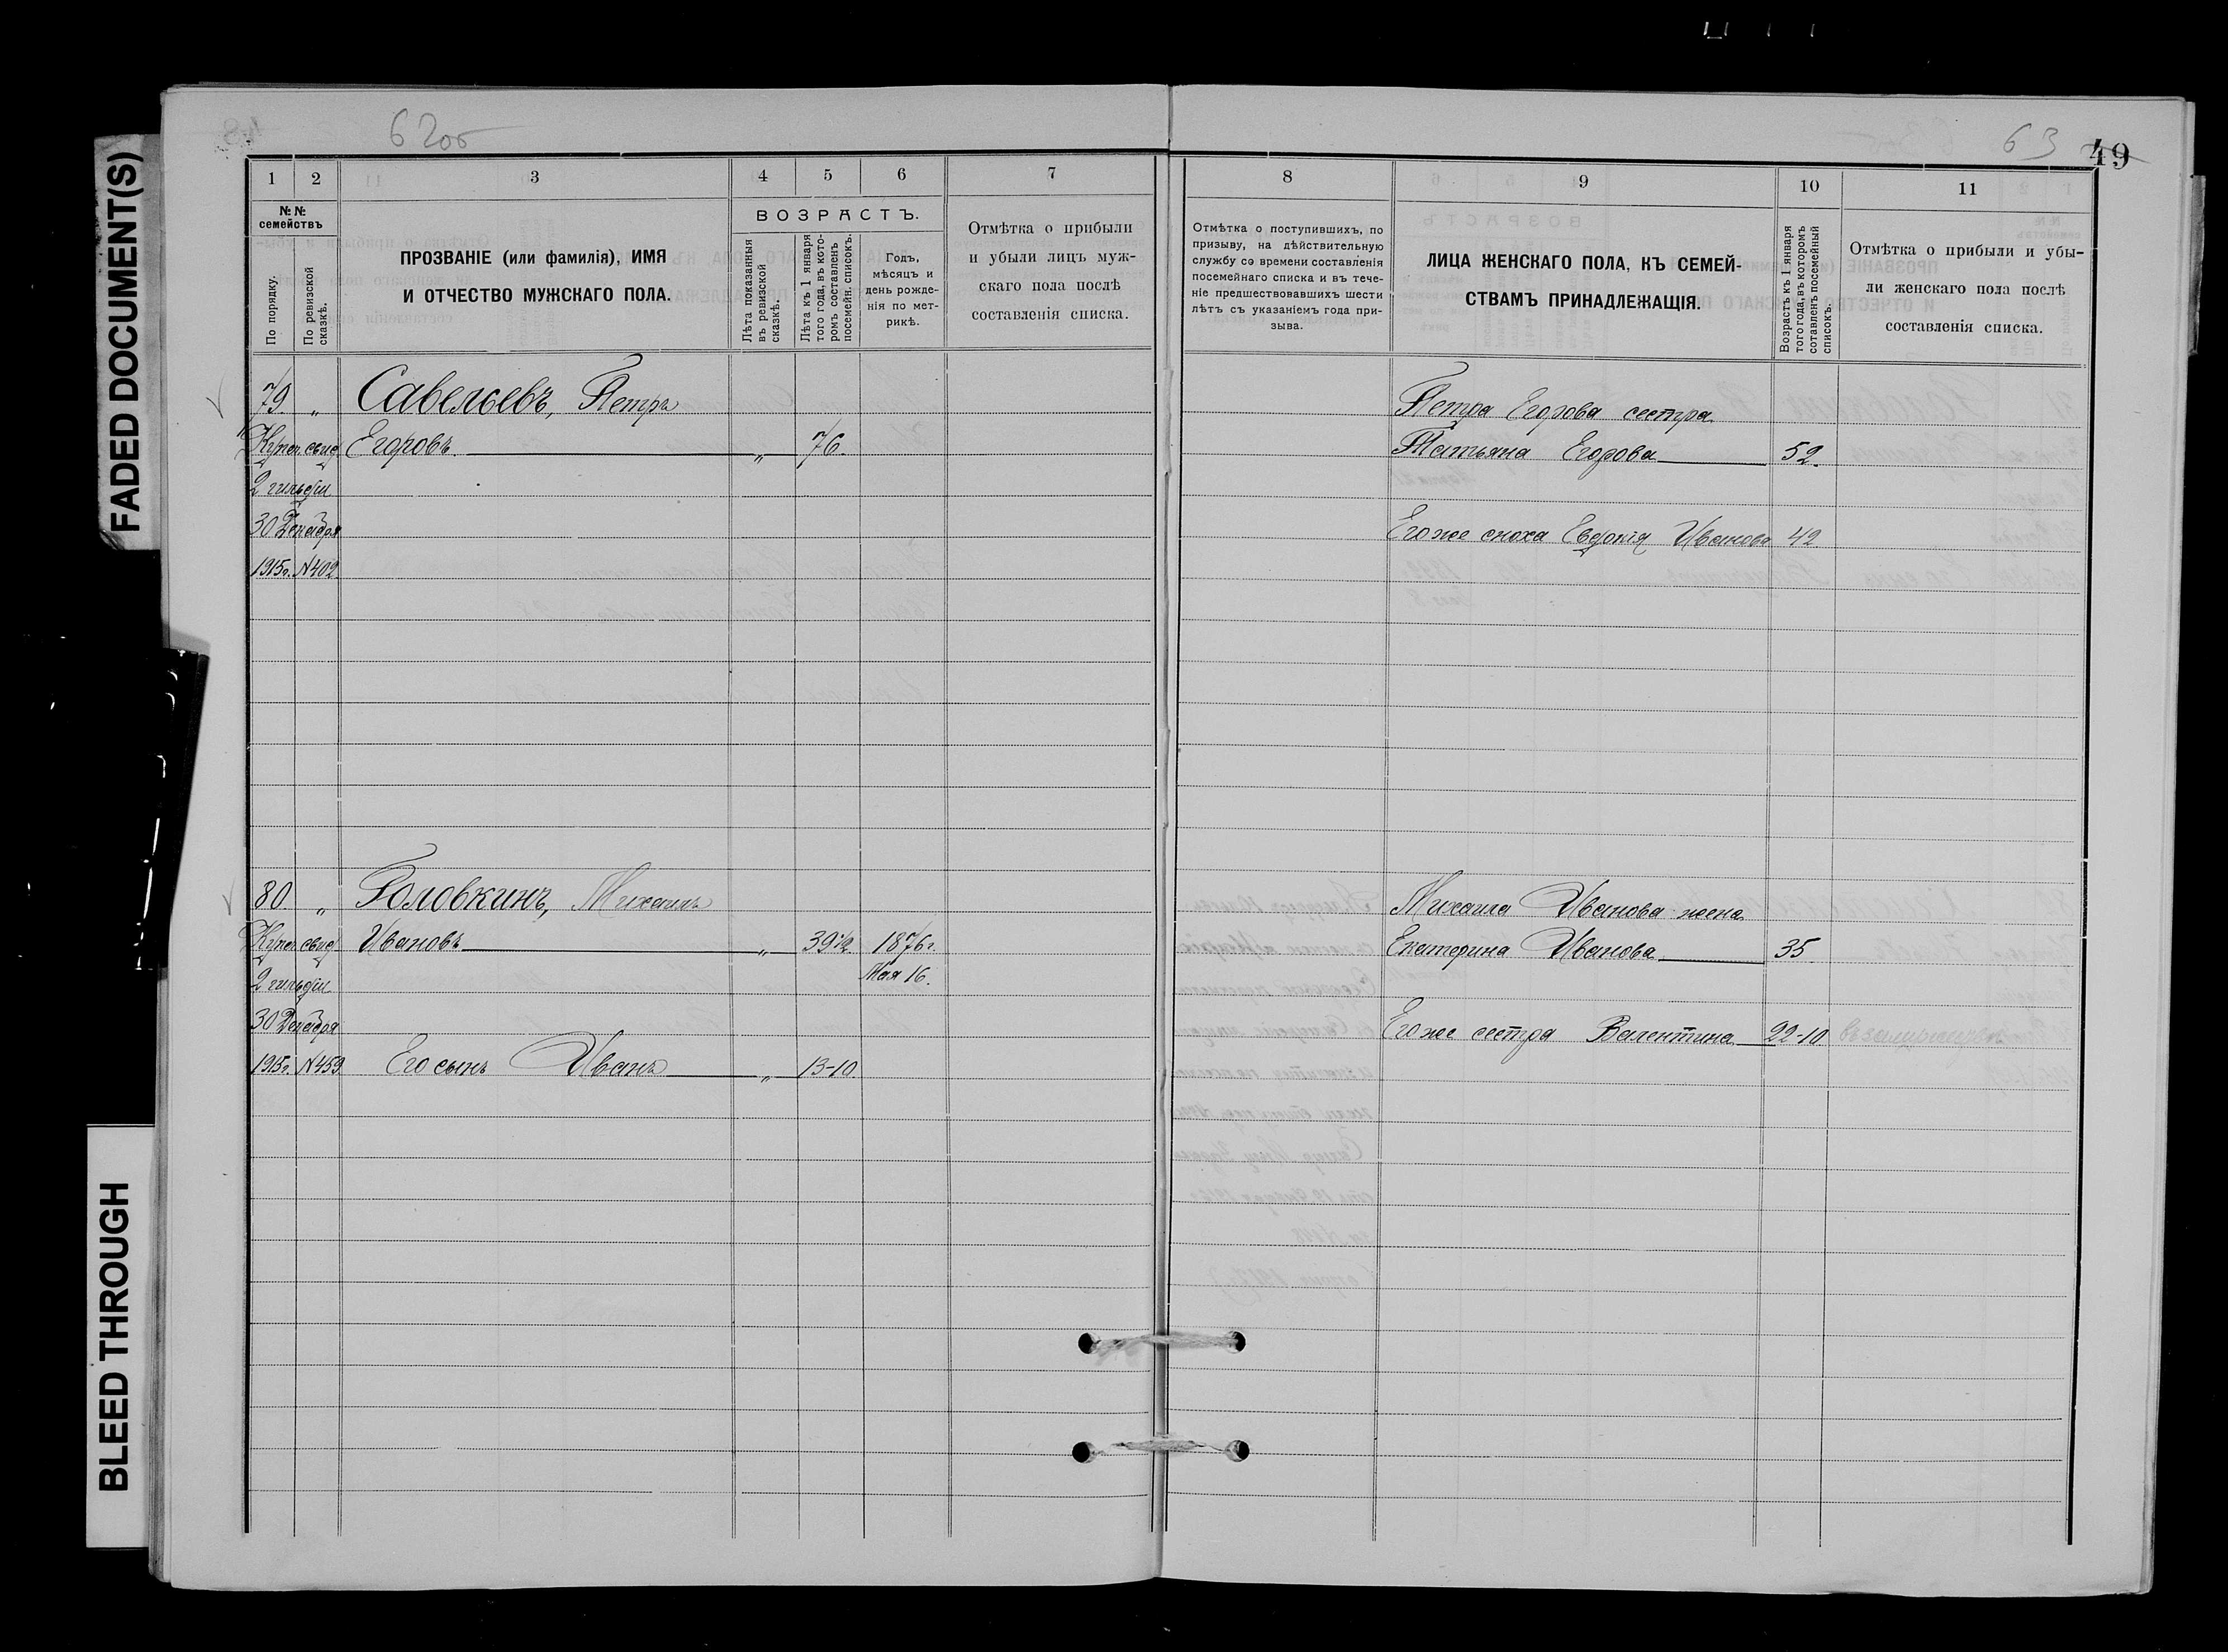 FADED DOCUMENT(S)
BLEED THROUGH
62об
63
49
1
2
3
4
5
6
7
№ №
семействъ
По порядку.
По ревизской
сказкѣ.
ПРОЗВАНІЕ (или фамилія), ИМЯ
И ОТЧЕСТВО МУЖСКАГО ПОЛА.
ВОЗРАСТЪ.
Лѣта показанныя
въ ревизской
сказкѣ.
Лѣта къ 1 января
того года, въ кото-
ромъ составленъ
посемейн. списокъ.
Годъ,
мѣсяцъ и
день рожде-
нія по мет-
рикѣ.
Отмѣтка о прибыли
и убыли лицъ муж-
скаго пола послѣ
составленія списка.
79. „ Савельевъ, Петръ
Купеч. свид. Егоровъ. „ 76.
2 гильдіи
30 Декабря
1915г. N402
80. „ Головкинъ, Михаилъ
Купеч. свид. Ивановъ „ 39½ 1876г.
2 гильдіи Мая 16.
30 Декабря
1915г. N459 Его сынъ Иванъ „ 13-10.
8
9
10
11
Отмѣтка о поступившихъ, по
призыву, на дѣйствительную
службу со времени составленія
посемейнаго списка и въ тече-
ніе предшествовавшихъ шести
лѣтъ съ указаніемъ года при-
зыва.
ЛИЦА ЖЕНСКАГО ПОЛА, КЪ СЕМЕЙ-
СТВАМЪ ПРИНАДЛЕЖАЩІЯ.
Возрастъ къ 1 января
того года, въ которомъ
составленъ посемейный
списокъ.
Отмѣтка о прибыли и убы-
ли женскаго пола послѣ
составленія списка.
Петра Егорова сестра
Татьяна Егорова 52.
Его же сноха Евдокія Иванова 42
Михаила Иванова жена
Екатерина Иванова 35
Его же сестра Валентина 22-10